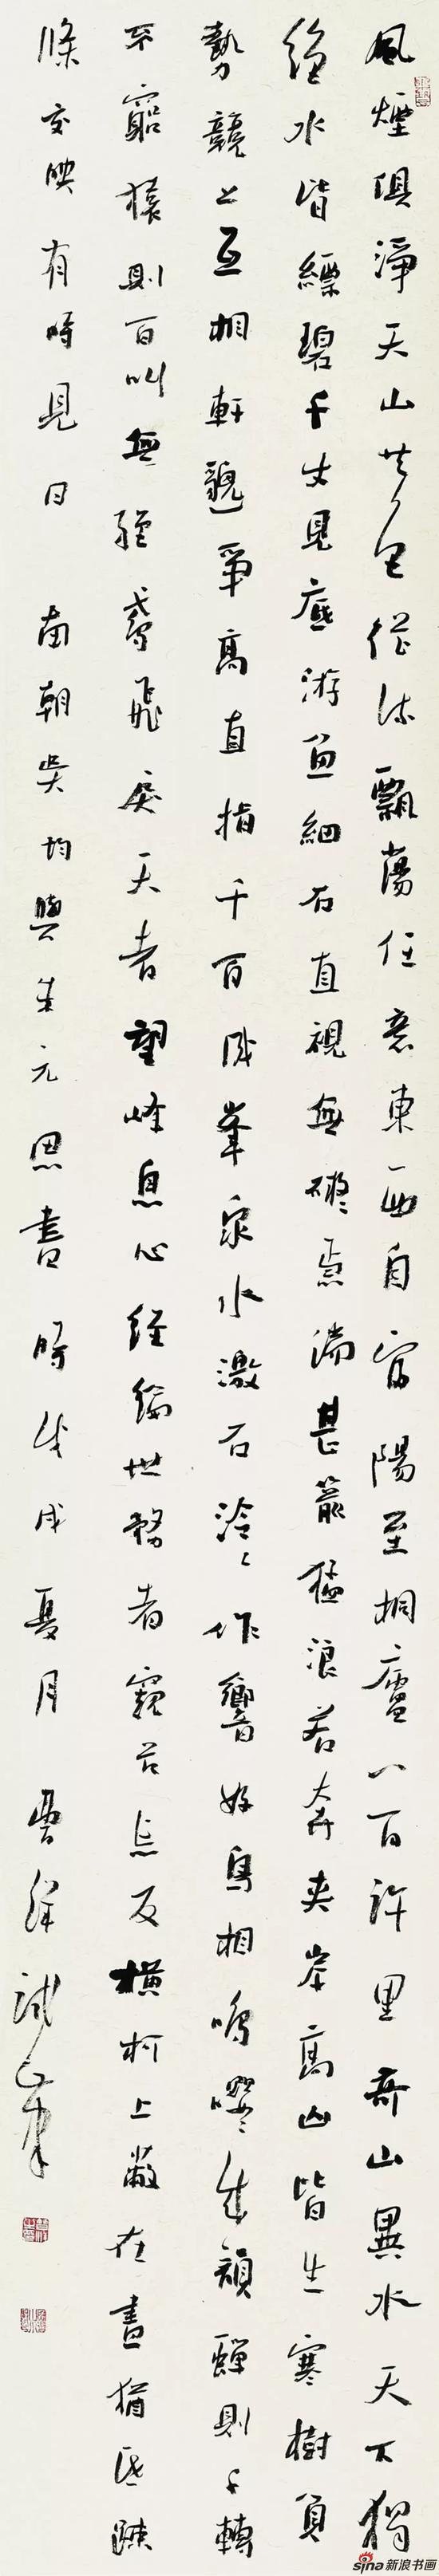 風煙俱淨天山共色從流飄蕩任意東西自富陽至桐廬一百許里奇山異水天下獨
絕水皆縹碧千丈見底游魚細石直視無礙急湍甚箭猛浪若奔夾岸高山皆生寒樹負
勢競上互相軒邈爭高直指千百成峯泉水激石泠々作響好鳥相鳴嚶々成韻蟬則千轉
不窮猿則百叫無絕鳶飛戾天者望峰息心經綸世務者窺谷忘反橫柯上蔽在晝猶昏疎
條交映有時見日 南朝吳均與朱元思書 時戊戌夏月
sina新浪书画